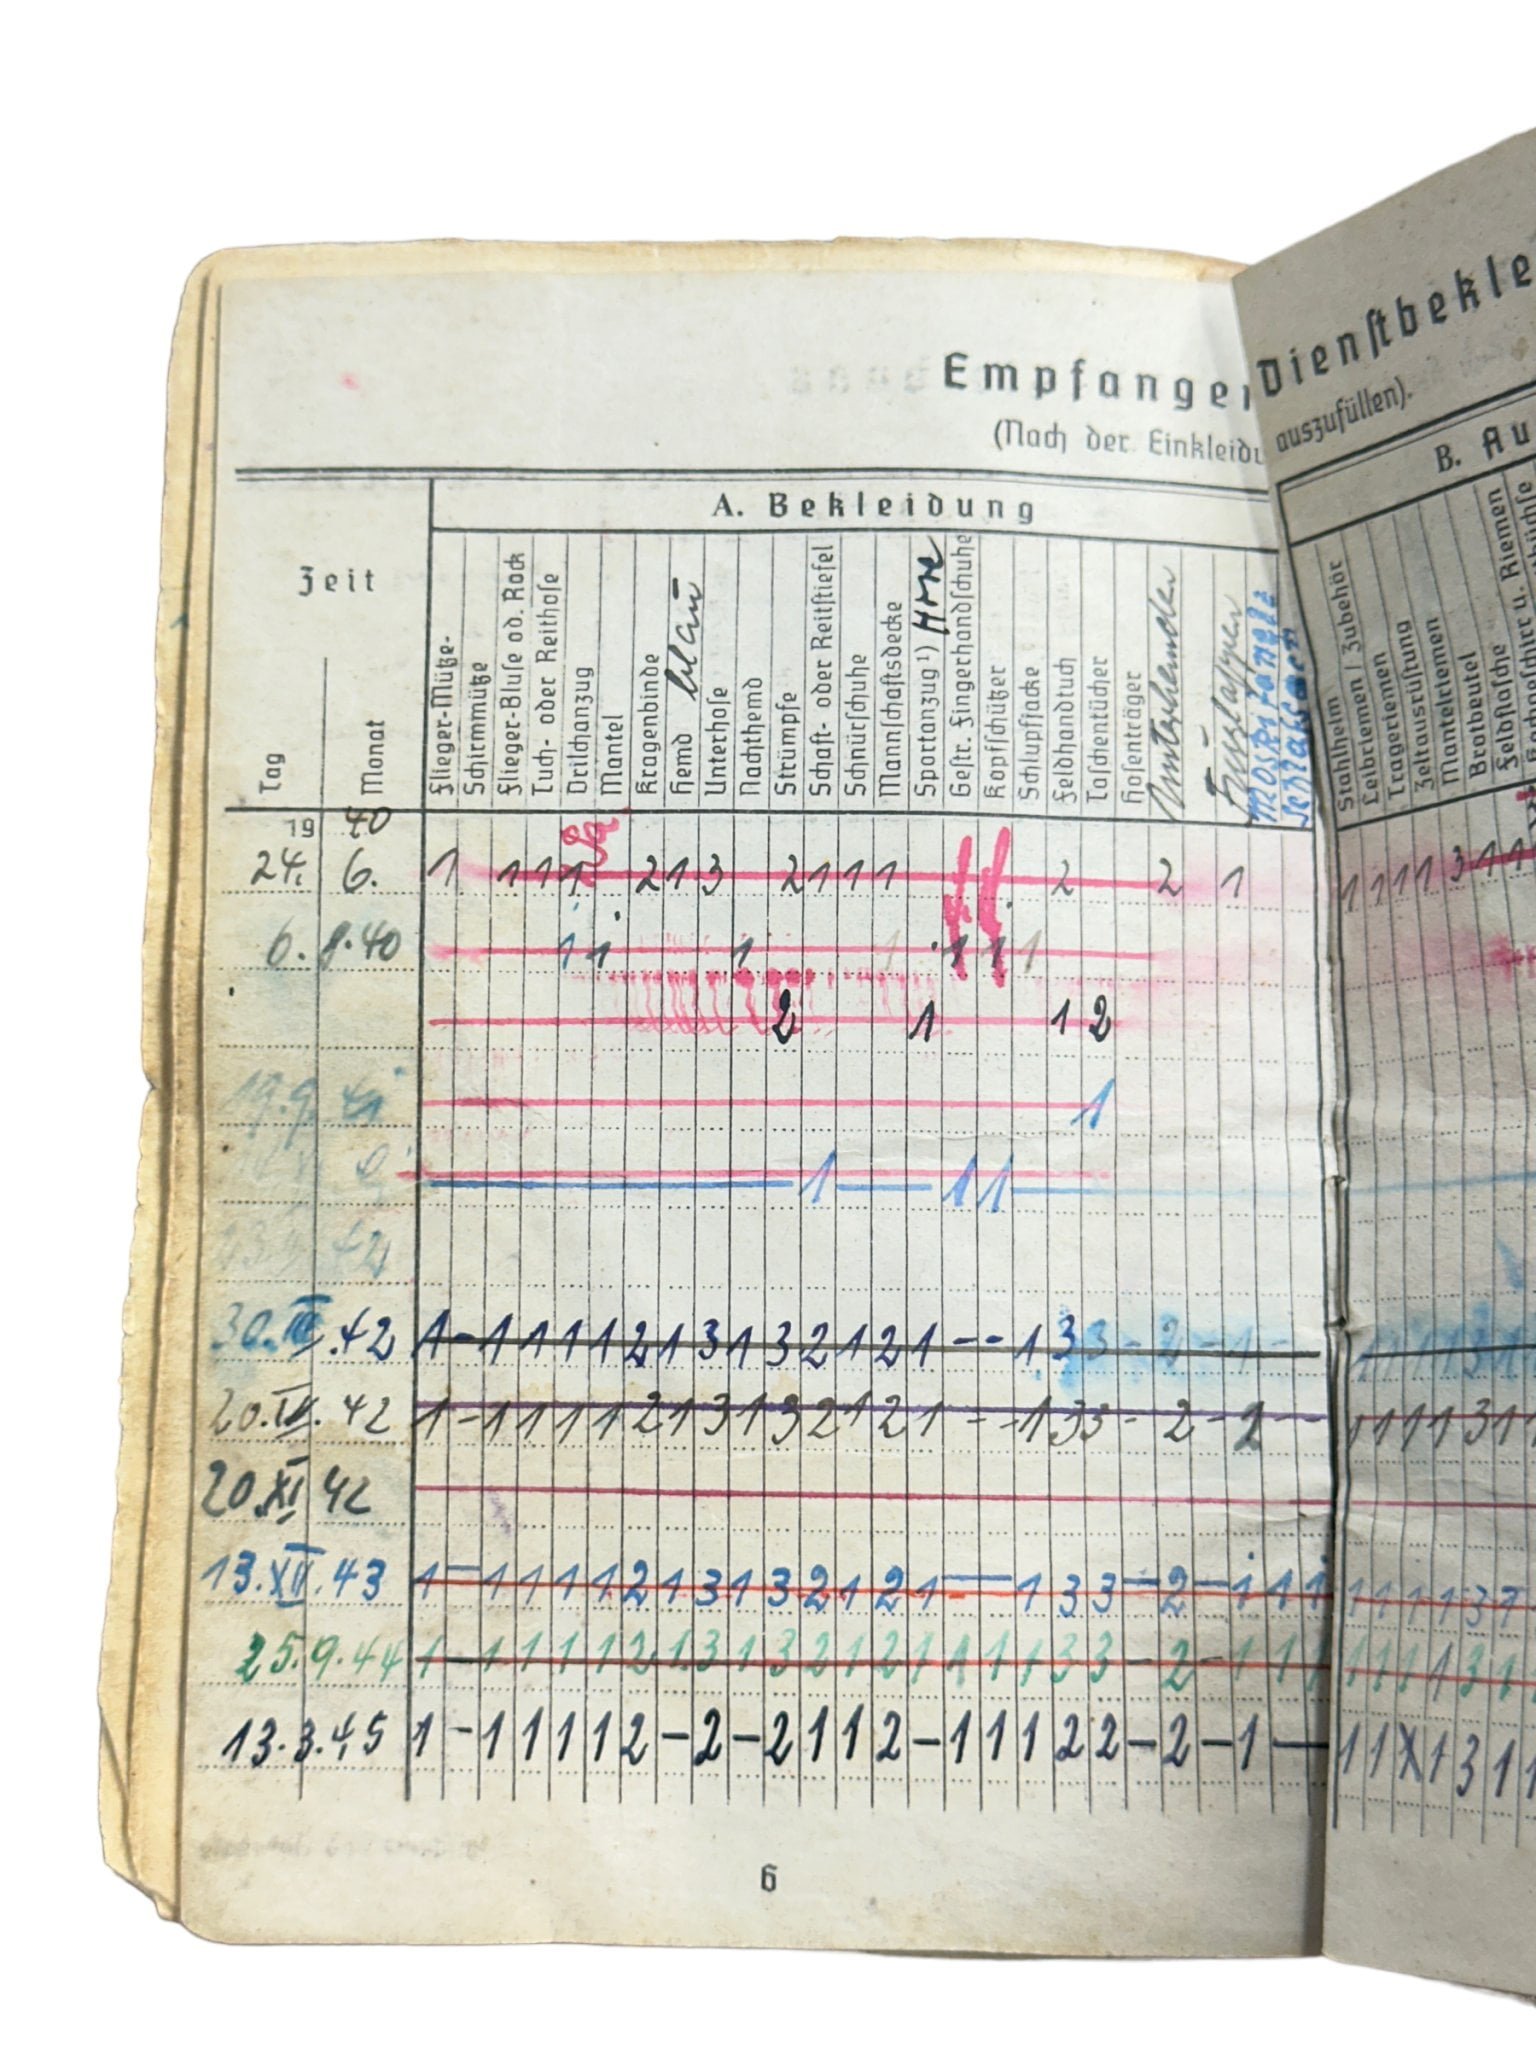 Empfangene Dienstbekle
(Nach der Einkleidu auszufüllen).
A. Bekleidung
B. Au
Zeit
Tag
Monat
Flieger-Mütze
Schirmmütze
Flieger-Bluse od. Rock
Tuch- oder Reithose
Drillchanzug
Mantel
Kragenbinde
Hemd blau
Unterhose
Nachthemd
Strümpfe
Schaft- oder Reitstiefel
Schnürschuhe
Mannschaftsdecke
Sportanzug ¹) Hose
Gestr. Fingerhandschuhe
Kopfschützer
Schlupfjacke
Feldhandtuch
Taschentücher
Hosenträger
Unterhemden
Fusslappen
Stahlhelm
Leibriemen / Zubehör
Trageriemen
Zeltausrüstung
Mantelriemen
Brotbeutel
Feldflasche
Kochgeschirr u. Riemen
19 40
24. 6. 1 1 1 1 2 1 3 2 1 1 1 2 2 1 1 1 1 1 3 1 1
6. 8. 40 1 1 1 1 1 1 1
2 1 1 2
19. 9. 41 1
1 1 1
42
30. III. 42 1 - 1 1 1 1 2 1 3 1 3 2 1 2 1 - - 1 3 3 - 2 - 1 -
20. IV. 42 1 - 1 1 1 1 2 1 3 1 3 2 1 2 1 - - 1 3 3 - 2 - 2 - 1 1 1 1 3 1 1
20. XI. 42
13. XII. 43 1 - 1 1 1 1 2 1 3 1 3 2 1 2 1 - 1 3 3 - 2 - 1 1 1 1 1 1 1 3 1
25. 9. 44 1 - 1 1 1 1 2 1 3 1 3 2 1 2 1 1 1 1 3 3 - 2 - 1 1 1 1 1 1 1 3 1
13. 3. 45 1 - 1 1 1 1 2 - 2 - 2 1 1 2 - 1 1 1 2 2 - 2 - 1 - 1 1 X 1 3 1 1
6